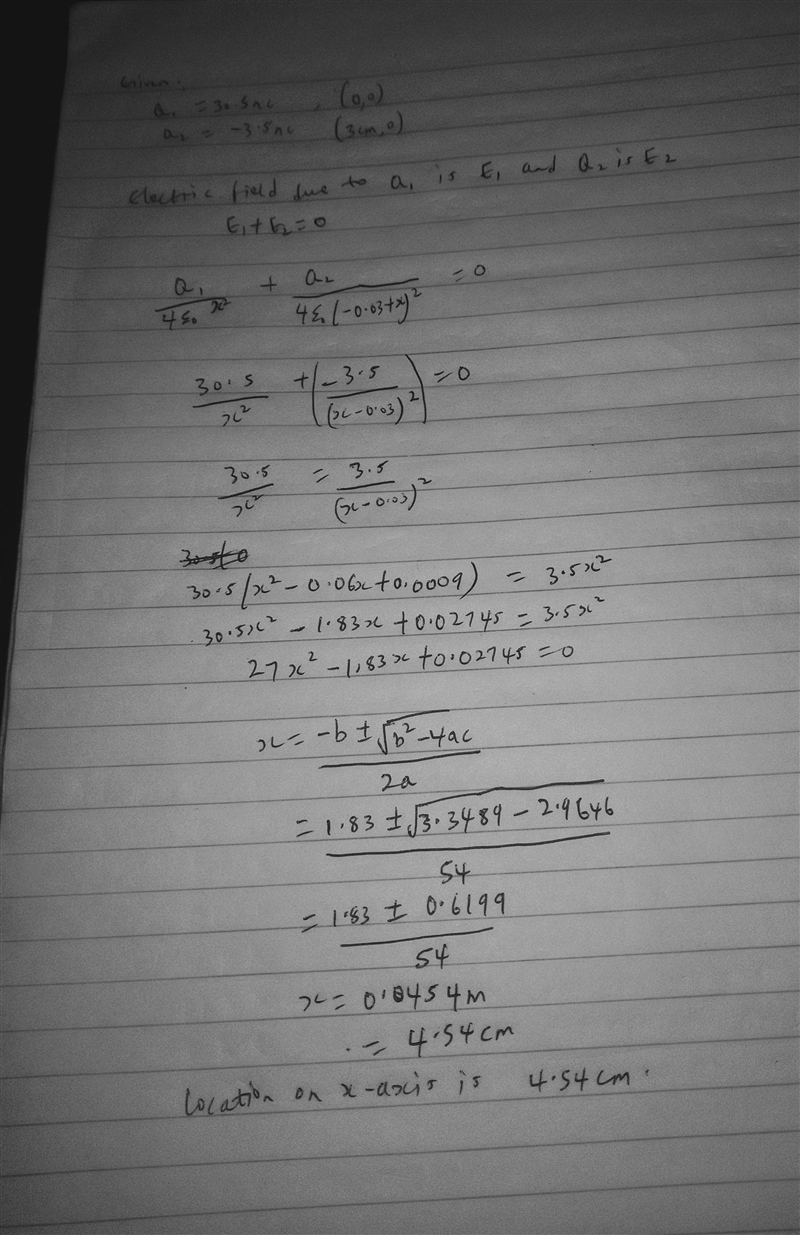 Given:
Q₁ = 30.5nc , (0,0)
Q₂ = -3.5nc (3cm,0)
Electric field due to Q₁ is E₁ and Q₂ is E₂
E₁+E₂=0
Q₁/4ε₀ x² + Q₂/4ε₀(-0.03+x)² = 0
30.5/x² + (-3.5/(x-0.03)²) = 0
30.5/x² = 3.5/(x-0.03)²
30.5(x² - 0.06x + 0.0009) = 3.5x²
30.5x² - 1.83x + 0.02745 = 3.5x²
27x² - 1.83x + 0.02745 = 0
x = -b ± √b²-4ac / 2a
= 1.83 ± √3.3489 - 2.9646 / 54
= 1.83 ± 0.6199 / 54
x = 0.0454m
= 4.54cm
Location on x-axis is 4.54cm.